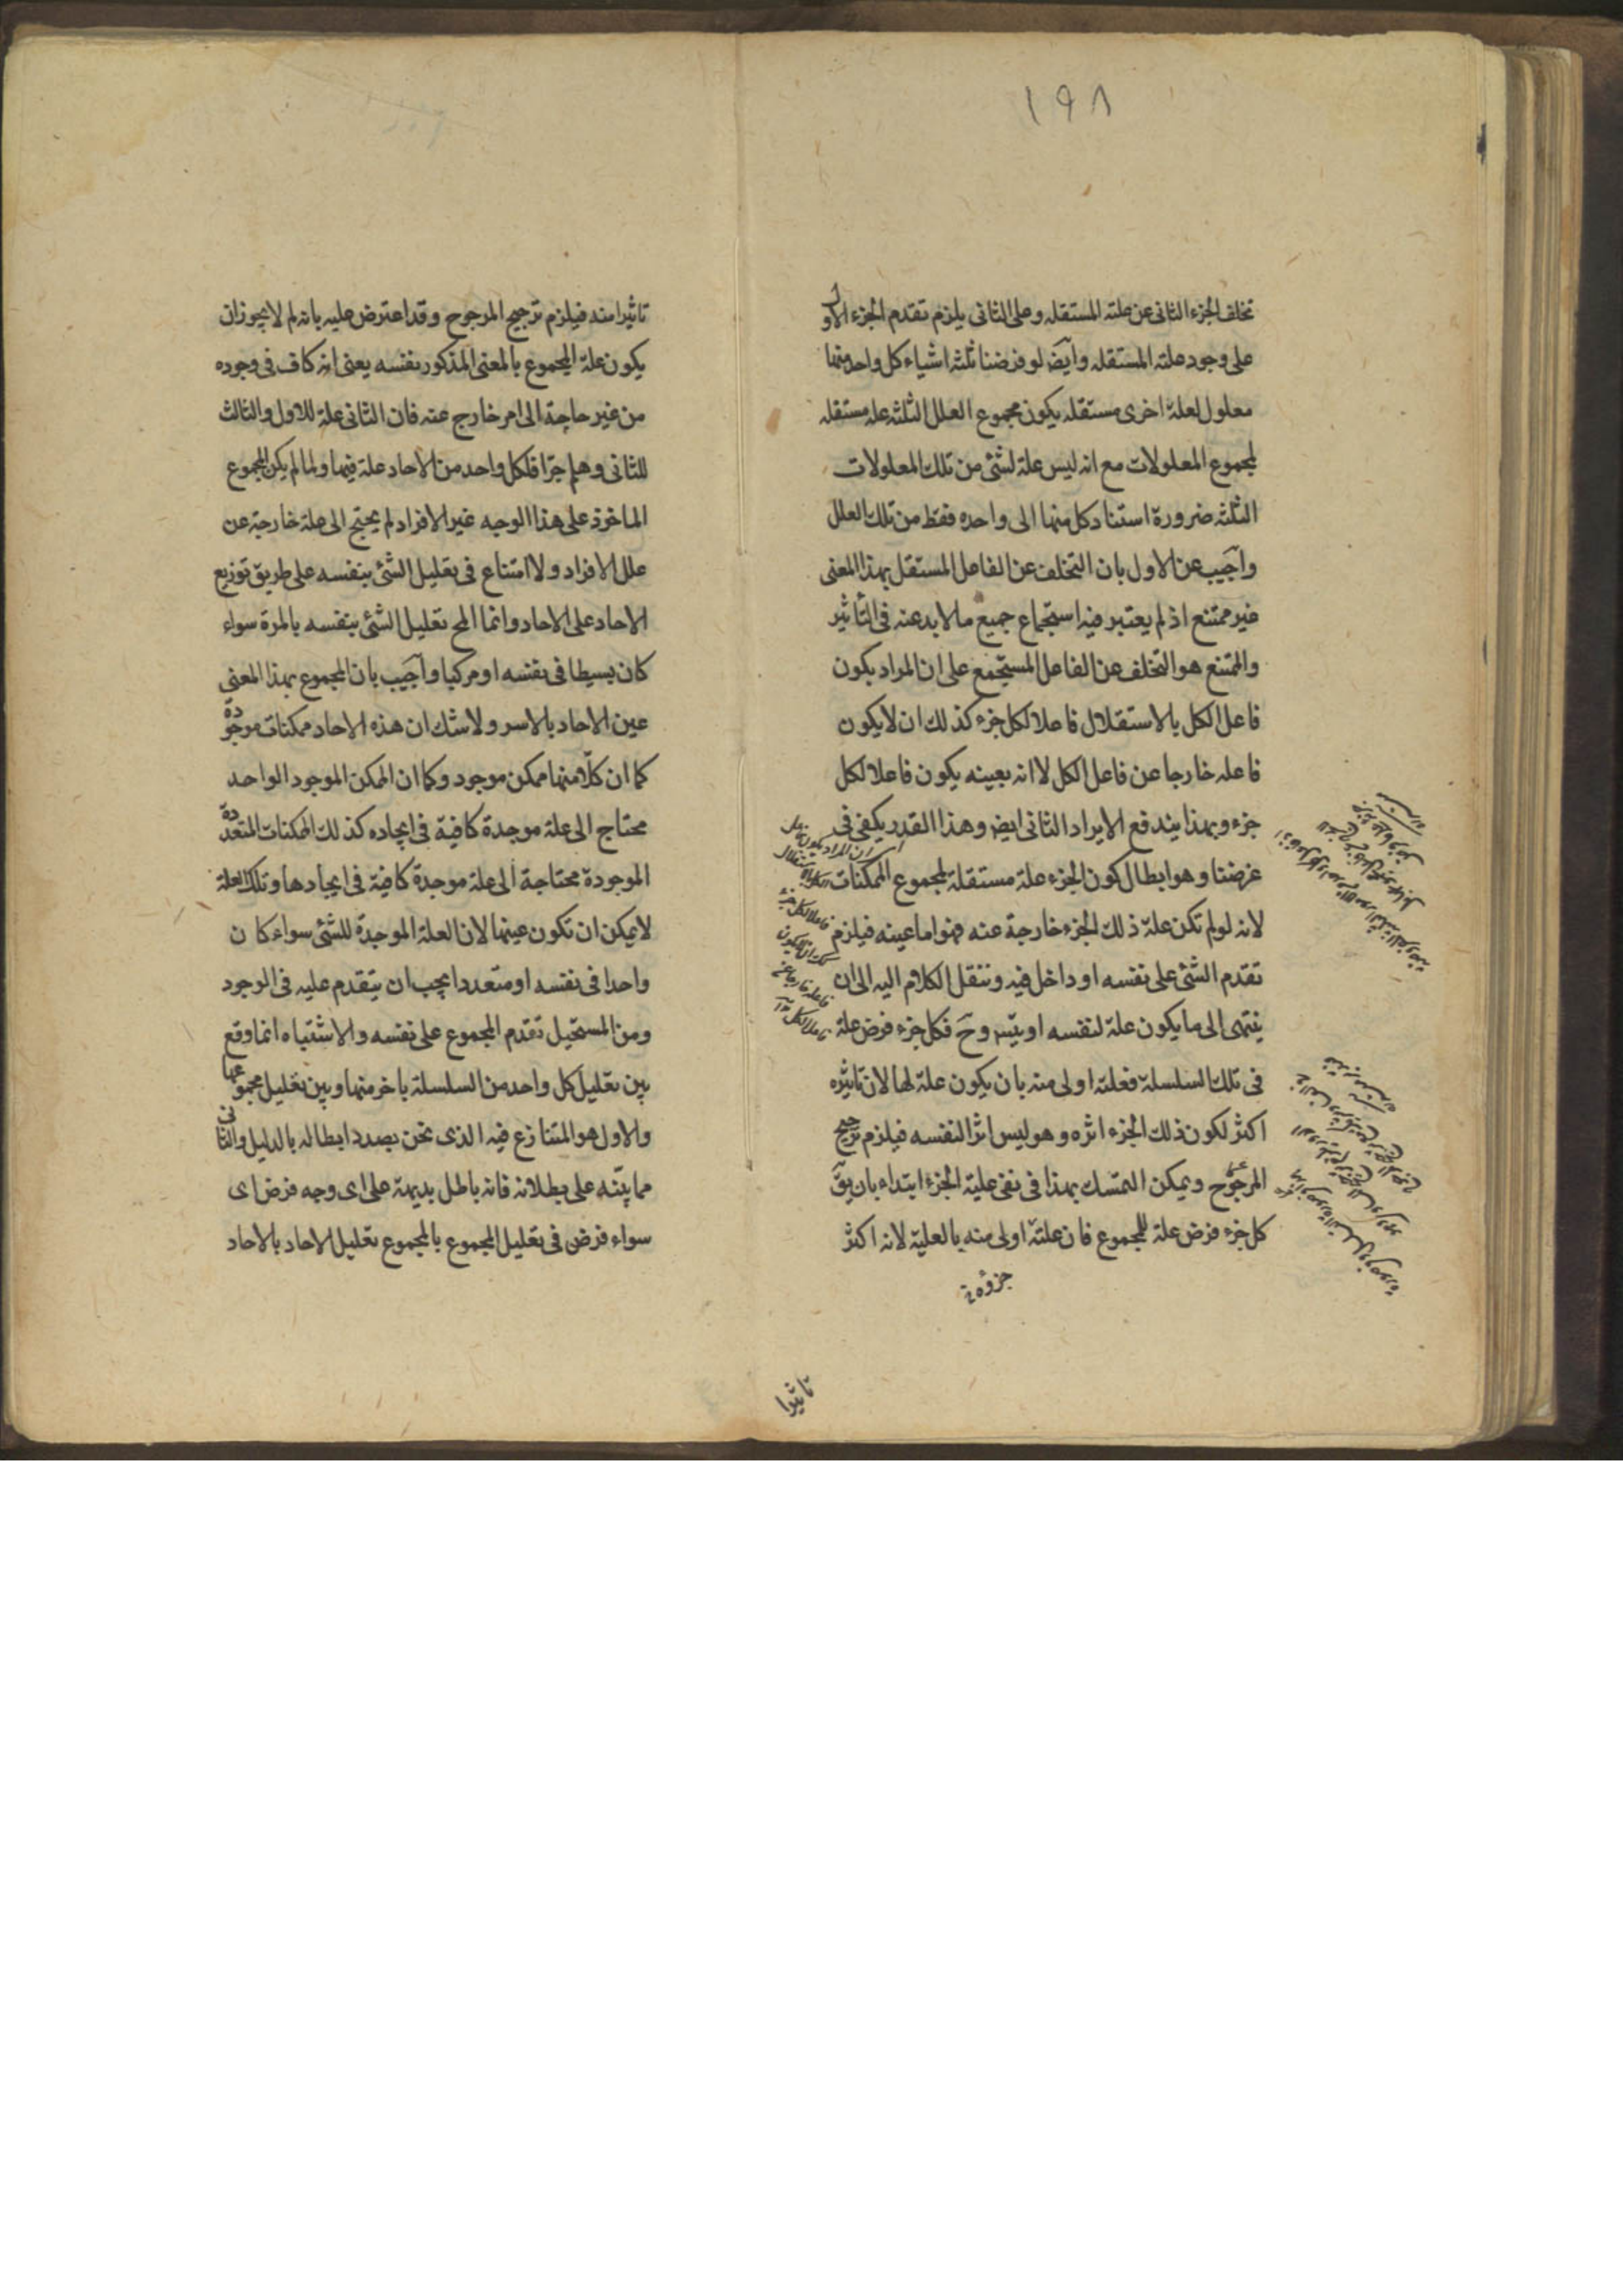 ١٩٨
تخلف الجزء الثانى عن علته المستقله وعلى الثانى يلزم تقدم الجزء الاول
على وجود علته المستقله وايضا لو فرضنا ثلثه اشياء كل واحد منها
معلول لعلة اخرى مستقله يكون مجموع العلل الثلثه علة مستقله
لمجموع المعلولات مع انه ليس علة لشئ من تلك المعلولات
الثلثه ضرورة استناد كل منها الى واحده فقط من تلك العلل
واجيب عن الاول بان التخلف عن الفاعل المستقل بهذا المعنى
غير ممتنع اذ لم يعتبر فيه استجماع جميع ما لا بد عنه فى التأثير
والممتنع هو التخلف عن الفاعل المستجمع على ان المراد بكون
فاعل الكل بالاستقلال فاعلا لكل جزء كذلك ان لا يكون
فاعله خارجا عن فاعل الكل لا انه بعينه يكون فاعلا لكل
جزء وبهذا يندفع الايراد الثانى ايضا وهذا القدر يكفى فى
غرضنا وهو ابطال كون الجزء علة مستقلة لمجموع الممكنات
لانه لو لم تكن علة ذلك الجزء خارجة عنه فهو اما عينه فيلزم
تقدم الشئ على نفسه او داخل فيه وننقل الكلام اليه الى ان
ينتهى الى ما يكون علة لنفسه او يتس وح فكل جزء فرض علة
فى تلك السلسلة فعلته اولى منه بان يكون علة لها لان تاثيره
اكثر لكون ذلك الجزء اثره وهو ليس اثرا لنفسه فيلزم ترجيح
المرجوح ويمكن التمسك بهذا فى نفى علية الجزء ابتداء بان يق
كل جزء فرض علة للمجموع فان علته اولى منه بالعلية لانه اكثر
تاثيرا
تاثيرا منه فيلزم ترجيح المرجوح وقد اعترض عليه بانه لم لا يجوز ان
يكون علة المجموع بالمعنى المذكور نفسه يعنى انه كاف فى وجوده
من غير حاجة الى امر خارج عنه فان الثانى علة للاول والثالث
للثانى وهلم جرا فلكل واحد من الاحاد علة فيها ولما لم يكن المجموع
الماخوذ على هذا الوجه غير الافراد لم يحتج الى علة خارجة عن
علل الافراد ولا امتناع فى تعليل الشئ بنفسه على طريق توزيع
الاحاد على الاحاد وانما المح تعليل الشئ بنفسه بالمرة سواء
كان بسيطا فى نفسه او مركبا واجيب بان المجموع بهذا المعنى
عين الاحاد بالاسر ولا شك ان هذه الاحاد ممكنات موجودة
كما ان كلا منها ممكن موجود وكما ان الممكن الموجود الواحد
محتاج الى علة موجدة كافية فى ايجاده كذلك الممكنات المتعددة
الموجودة محتاجة الى علة موجدة كافية فى ايجادها وتلك العلة
لا يمكن ان تكون عينها لان العلة الموجدة للشئ سواء كان
واحدا فى نفسه او متعددا يجب ان يتقدم عليه فى الوجود
ومن المستحيل تقدم المجموع على نفسه والاشتباه انما وقع
بين تعليل كل واحد من السلسلة باخر منها وبين تعليل مجموعها
والاول هو المتنازع فيه الذى نحن بصدد ابطاله بالدليل والثانى
مما ينبه على بطلانه فانه باطل بديهة على اى وجه فرض اى
سواء فرض فى تعليل المجموع بالمجموع تعليل الاحاد بالاحاد